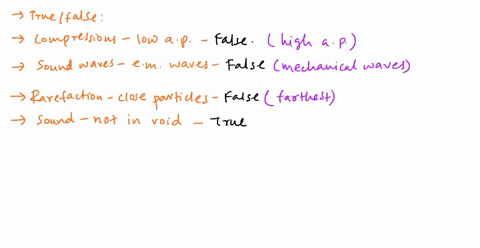 → True/false:
→ Compressions - low a.p. - False. (high a.p.)
→ Sound waves - e.m. waves - False (mechanical waves)
→ Rarefaction - close particles - False (farthest)
→ Sound - not in void - True